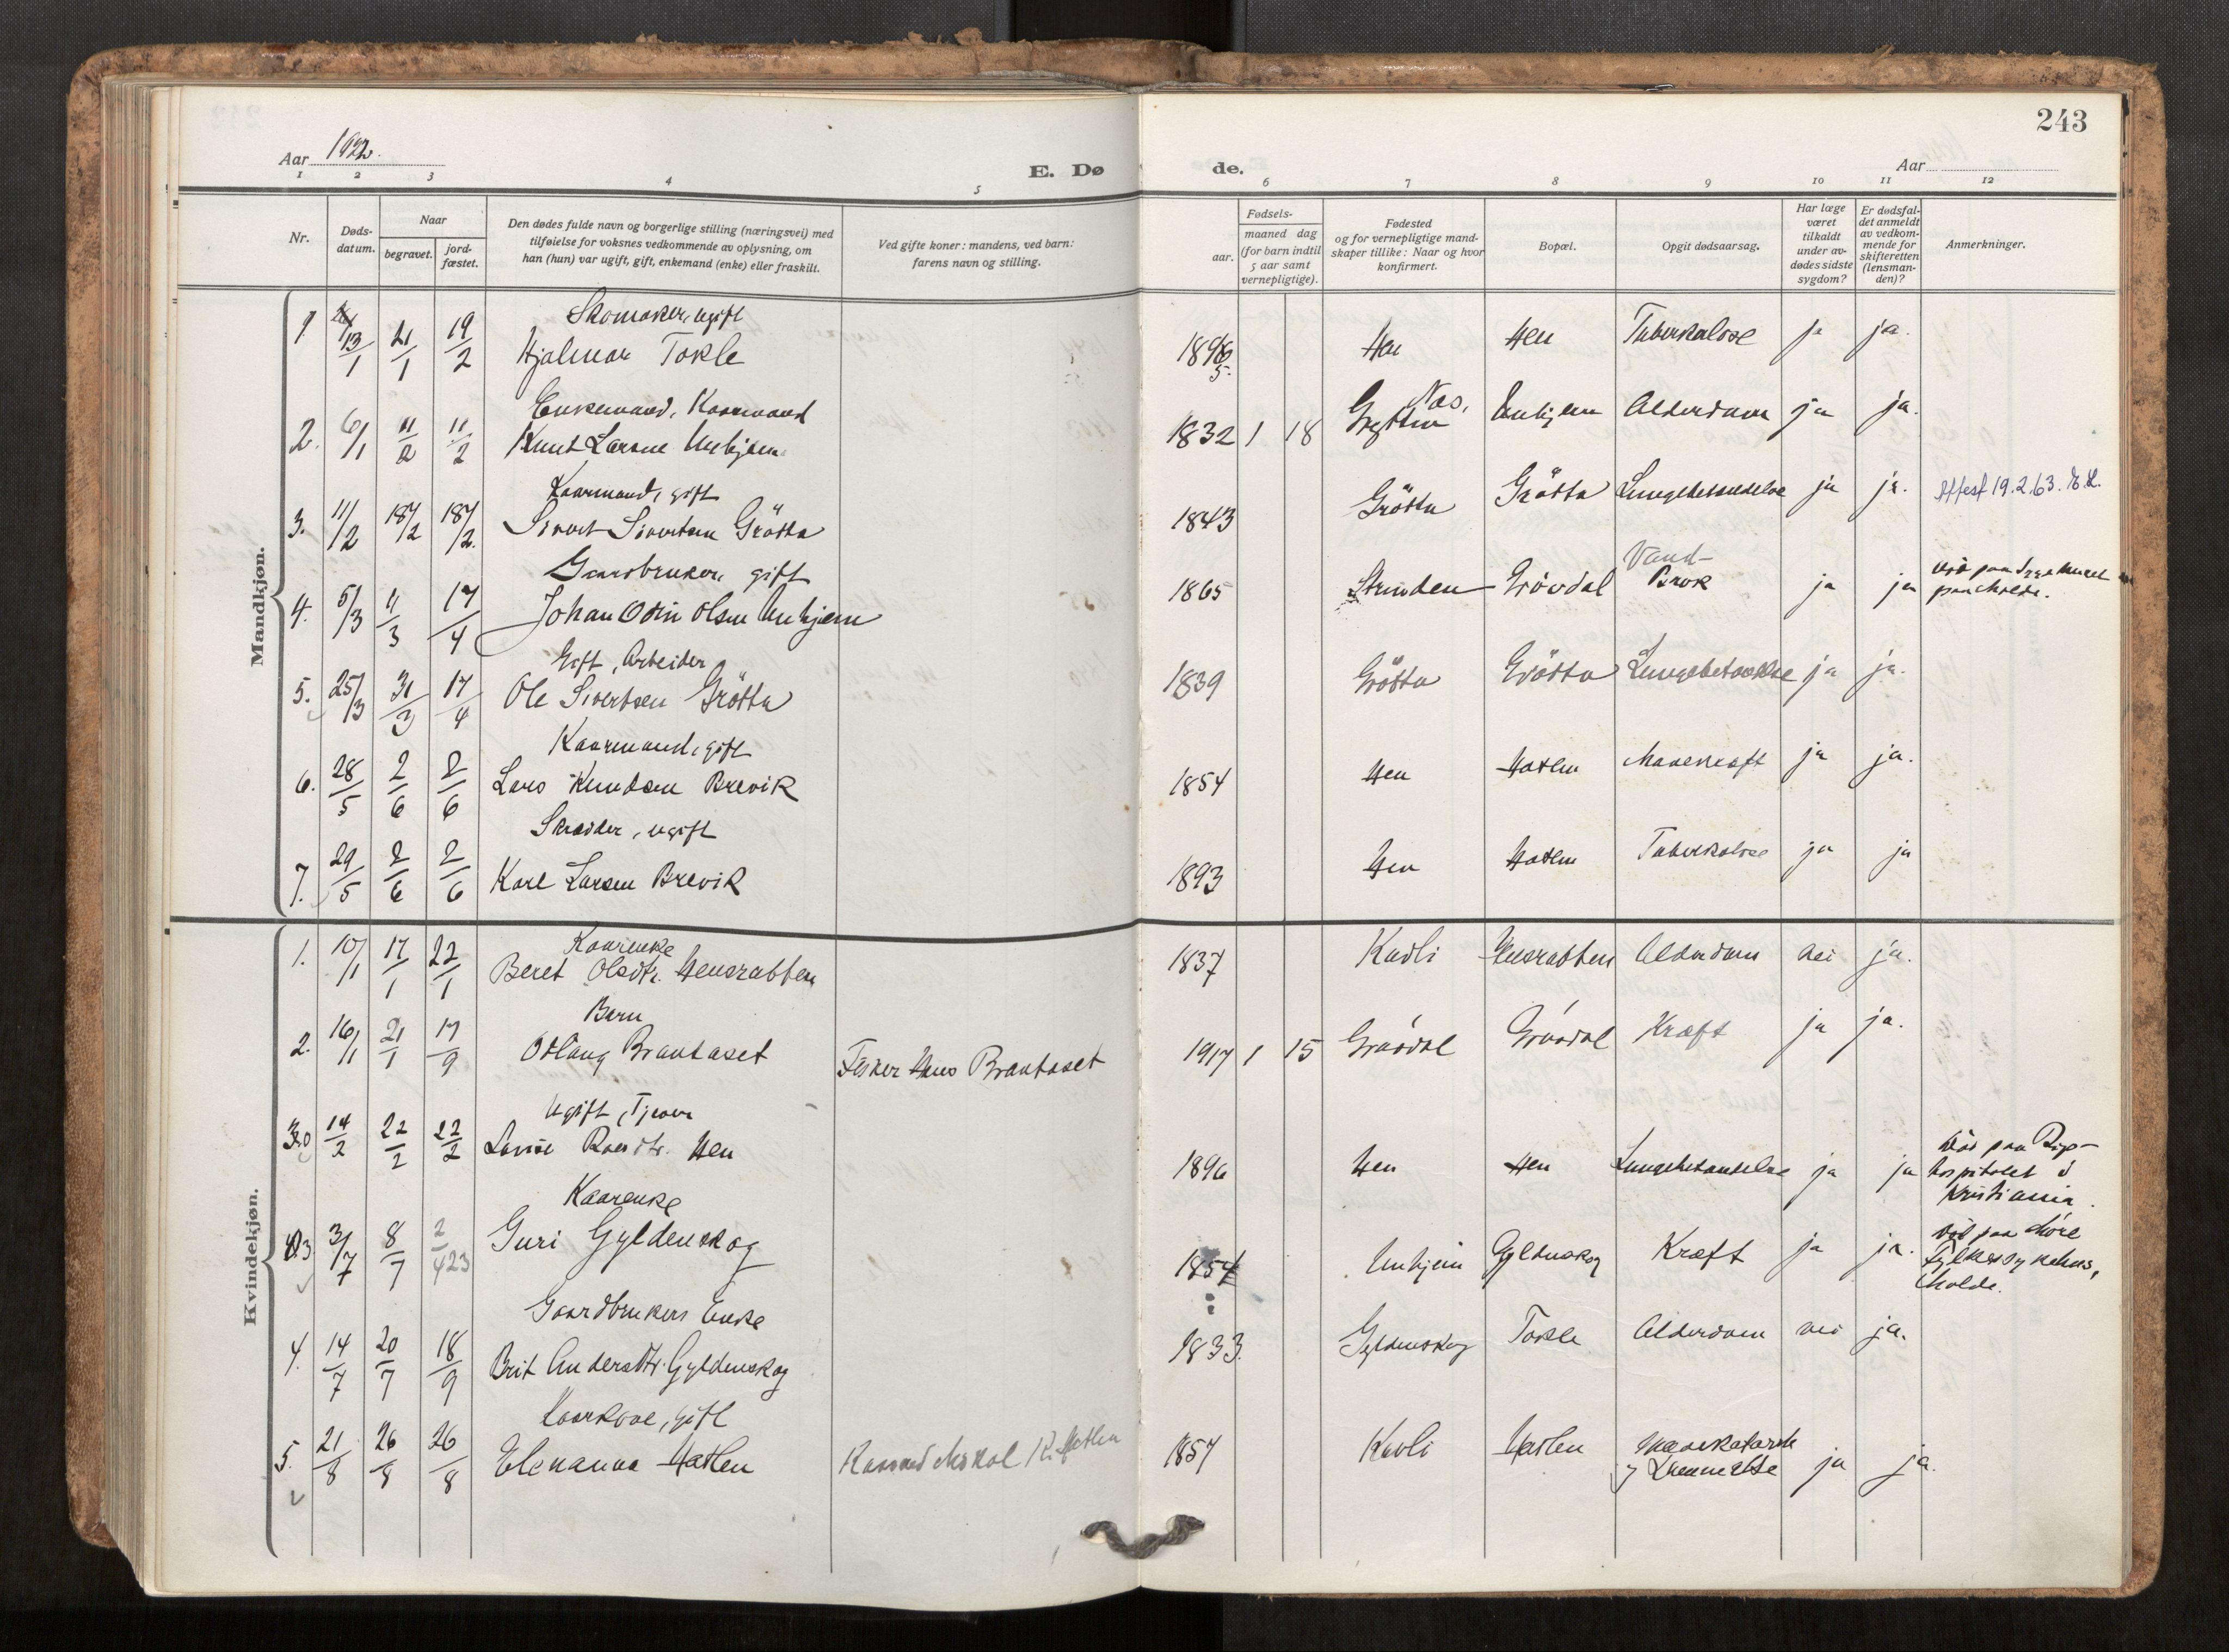 243
Aar 1922.
E. Dø de.
Aar
1 2 3 4 5 6 7 8 9 10 11 12
Nr.
Døds-
datum.
Naar
begravet.
jord-
fæstet.
Den dødes fulde navn og borgerlige stilling (næringsvei) med
tilføielse for voksnes vedkommende av oplysning, om
han (hun) var ugift, gift, enkemand (enke) eller fraskilt.
Ved gifte koner: mandens, ved barn:
farens navn og stilling.
Fødsels-
aar.
maaned dag
(for barn indtil
5 aar samt
vernepligtige).
Fødested
og for vernepligtige mand-
skaper tillike: Naar og hvor
konfirmert.
Bopæl.
Opgit dødsaarsag.
Har læge
været
tilkaldt
under av-
dødes sidste
sygdom?
Er dødsfal-
det anmeldt
av vedkom-
mende for
skifteretten
(lensman-
den)?
Anmerkninger.
Mandkjøn.
Skomaker, ugift
1 13/1 21/1 19/2 Hjalmar Tokle 1895 Hen Hen Tuberkulose ja ja.
Enkemand, Kaarmand
2. 6/1 11/2 11/2 Knut Larsen Unhjem 1832 1 18 Nes, Grytten Unhjem Alderdom ja ja.
Kaarmand, gift
3. 11/2 18/2 18/2. Sivert Sivertsen Grötta 1843 Grötta Grötta Lungebetændelse ja ja. Attest 19.2.63. E.K.
Gaardbruker, gift
4. 5/3 11/3 17/4 Johan Odin Olsen Unhjem 1865 Grövdal Vand-
Brok ja ja
paa Molde.
Gift, Arbeider
5. 25/3 31/3 17/4 Ole Sivertsen Grötta 1839 Grötta Grötta ja ja.
Kaarmand, gift
6. 28/5 2/6 2/6 Lars Knudsen Brevik 1854 Hen Hatlen Mavekræft ja ja.
Skrædder, ugift
7. 29/5 2/6 2/6 Karl Larsen Brevik 1893 Hen Hatlen Tuberkulose ja ja
Kvindekjøn.
Kaarenke
1. 10/1 17/1 22/1 Beret Olsdtr. Hensrabben 1837 Kavli Hensrabben Alderdom nei ja.
Barn
2. 16/1 21/1 17/9 Odlaug Brautaset Fisker Hans Brautaset 1917 1 15 Grövdal Grövdal Kræft ja ja.
Ugift, Tjener
3. 14/2 22/2 22/2 Lovise Hen 1896 Hen Hen Lungebetændelse ja ja Död paa Rigs-
hospitalet i
Kristiania.
Kaarenke
3 3/7 8/7 2/4 23 Guri Gyldenskog 1854 Unhjem Gyldenskog Kræft ja ja. död paa Möre
Fylkessykehus,
Molde.
Gaardbrukers Enke
4. 14/7 20/7 18/9 Brit Andersdtr. Gyldenskog 1833. Gyldenskog Tokle Alderdom nei ja.
Kaarkone, gift
5. 21/8 26/8 26/8 Elenanna Hatlen Kaarmand K. Hatlen 1857 Kavli Hatlen Mavekatarrh
ja ja.